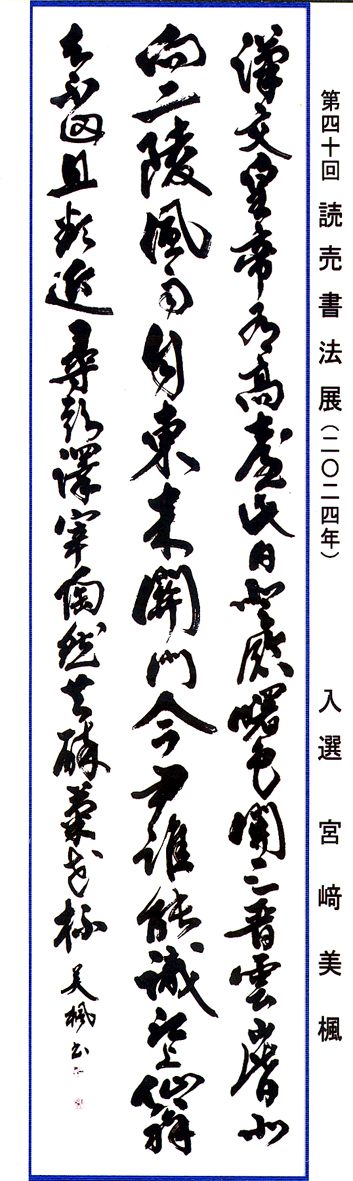 第四十回 読売書法展(二〇二四年) 入選 宮﨑美楓
漢文皇帝有高臺此日登臨曙色開三晉雲山皆北
向二陵風雨自東来關門令尹誰能識河上仙翁
去不回且欲近尋彭澤宰陶然共酔菊花杯 美楓書